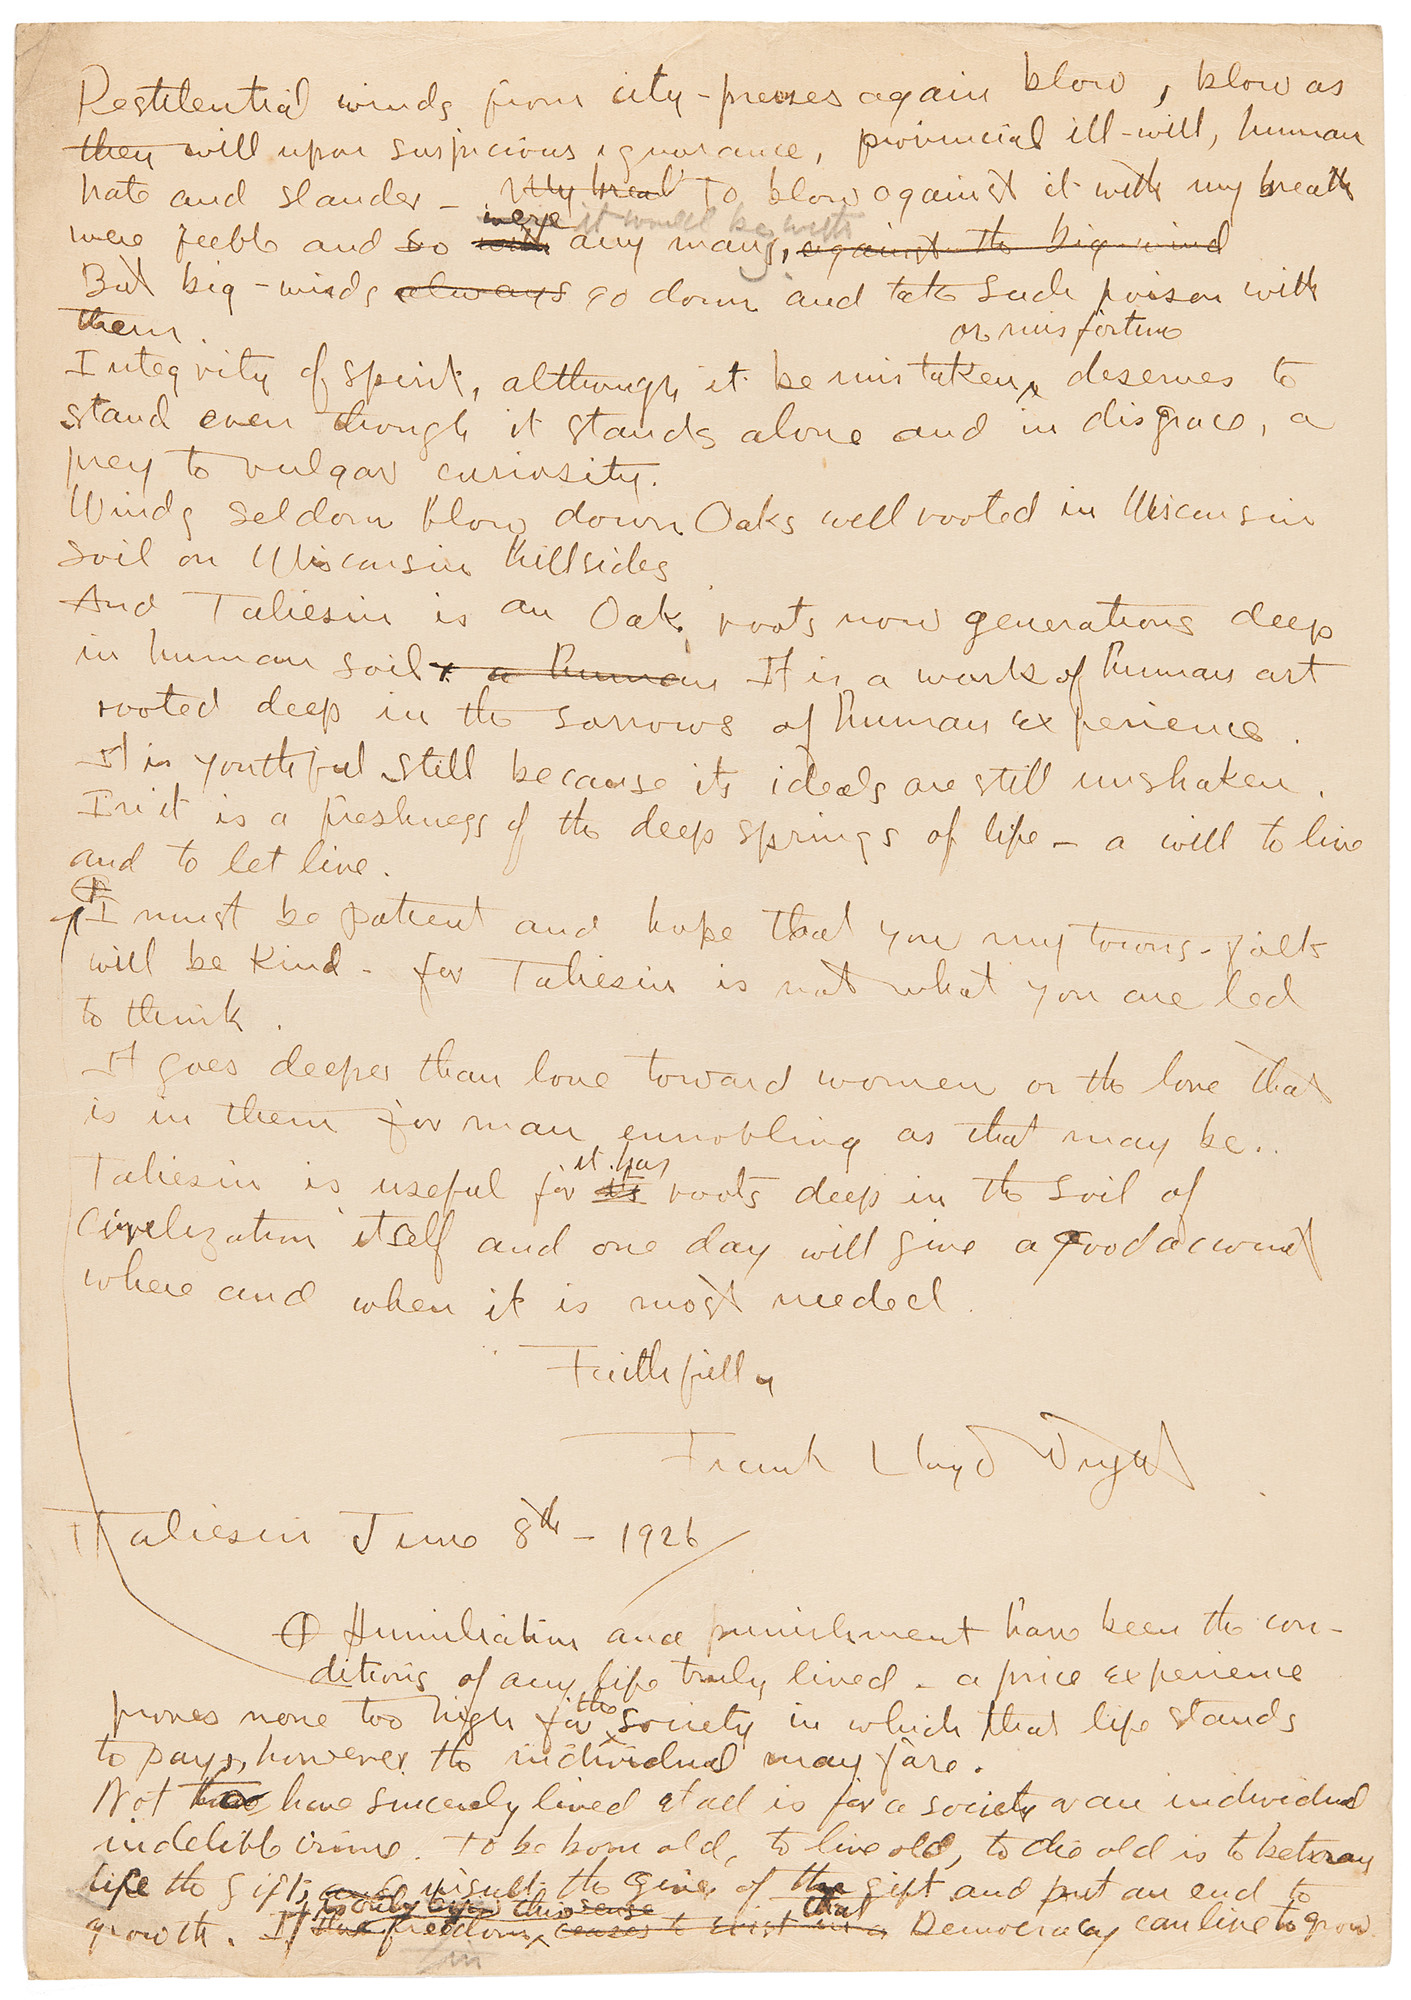 Pestilential winds from city-presses again blow, blow as
they will upon suspicious ignorance, provincial ill-will, human
hate and slander - My breat To blow against it with my breath
were it would be with
were feeble and so with any man's, against the big wind
But big-winds always go down and take such poison with
them.
or misfortune
Integrity of spirit, although it be mistaken, deserves to
stand even though it stands alone and in disgrace, a
prey to vulgar curiosity.
Winds seldom blow down Oaks well rooted in Wisconsin
soil on Wisconsin hillsides
And Taliesin is an Oak, roots now generations deep
in human soil, a human It is a work of human art
rooted deep in the sorrows of human experience.
It is youthful still because its ideals are still unshaken.
In it is a freshness of the deep springs of life - a will to live
and to let live.
I must be patient and hope that you my towns-folk
will be kind - for Taliesin is not what you are led
to think.
It goes deeper than love toward women or the love that
is in them for man ennobling as that may be..
it has
Taliesin is useful for its roots deep in the soil of
Civilization itself and one day will give a good account
where and when it is most needed.
Faithfully
Frank Lloyd Wright
Taliesin June 8th - 1926
Humiliation and punishment have been the con-
ditions of any life truly lived - a price experience
the
proves none too high for society in which that life stands
to pay, however the individual may fare.
Not have sincerely lived at all is for a society or an individual
indelible crime. To be born old, to live old, to die old is to betray
life the gift, insult the Giver of the gift and put an end to
is only by in this sense that
growth. If this freedom, ceases to exist in a Democracy can live to grow
in